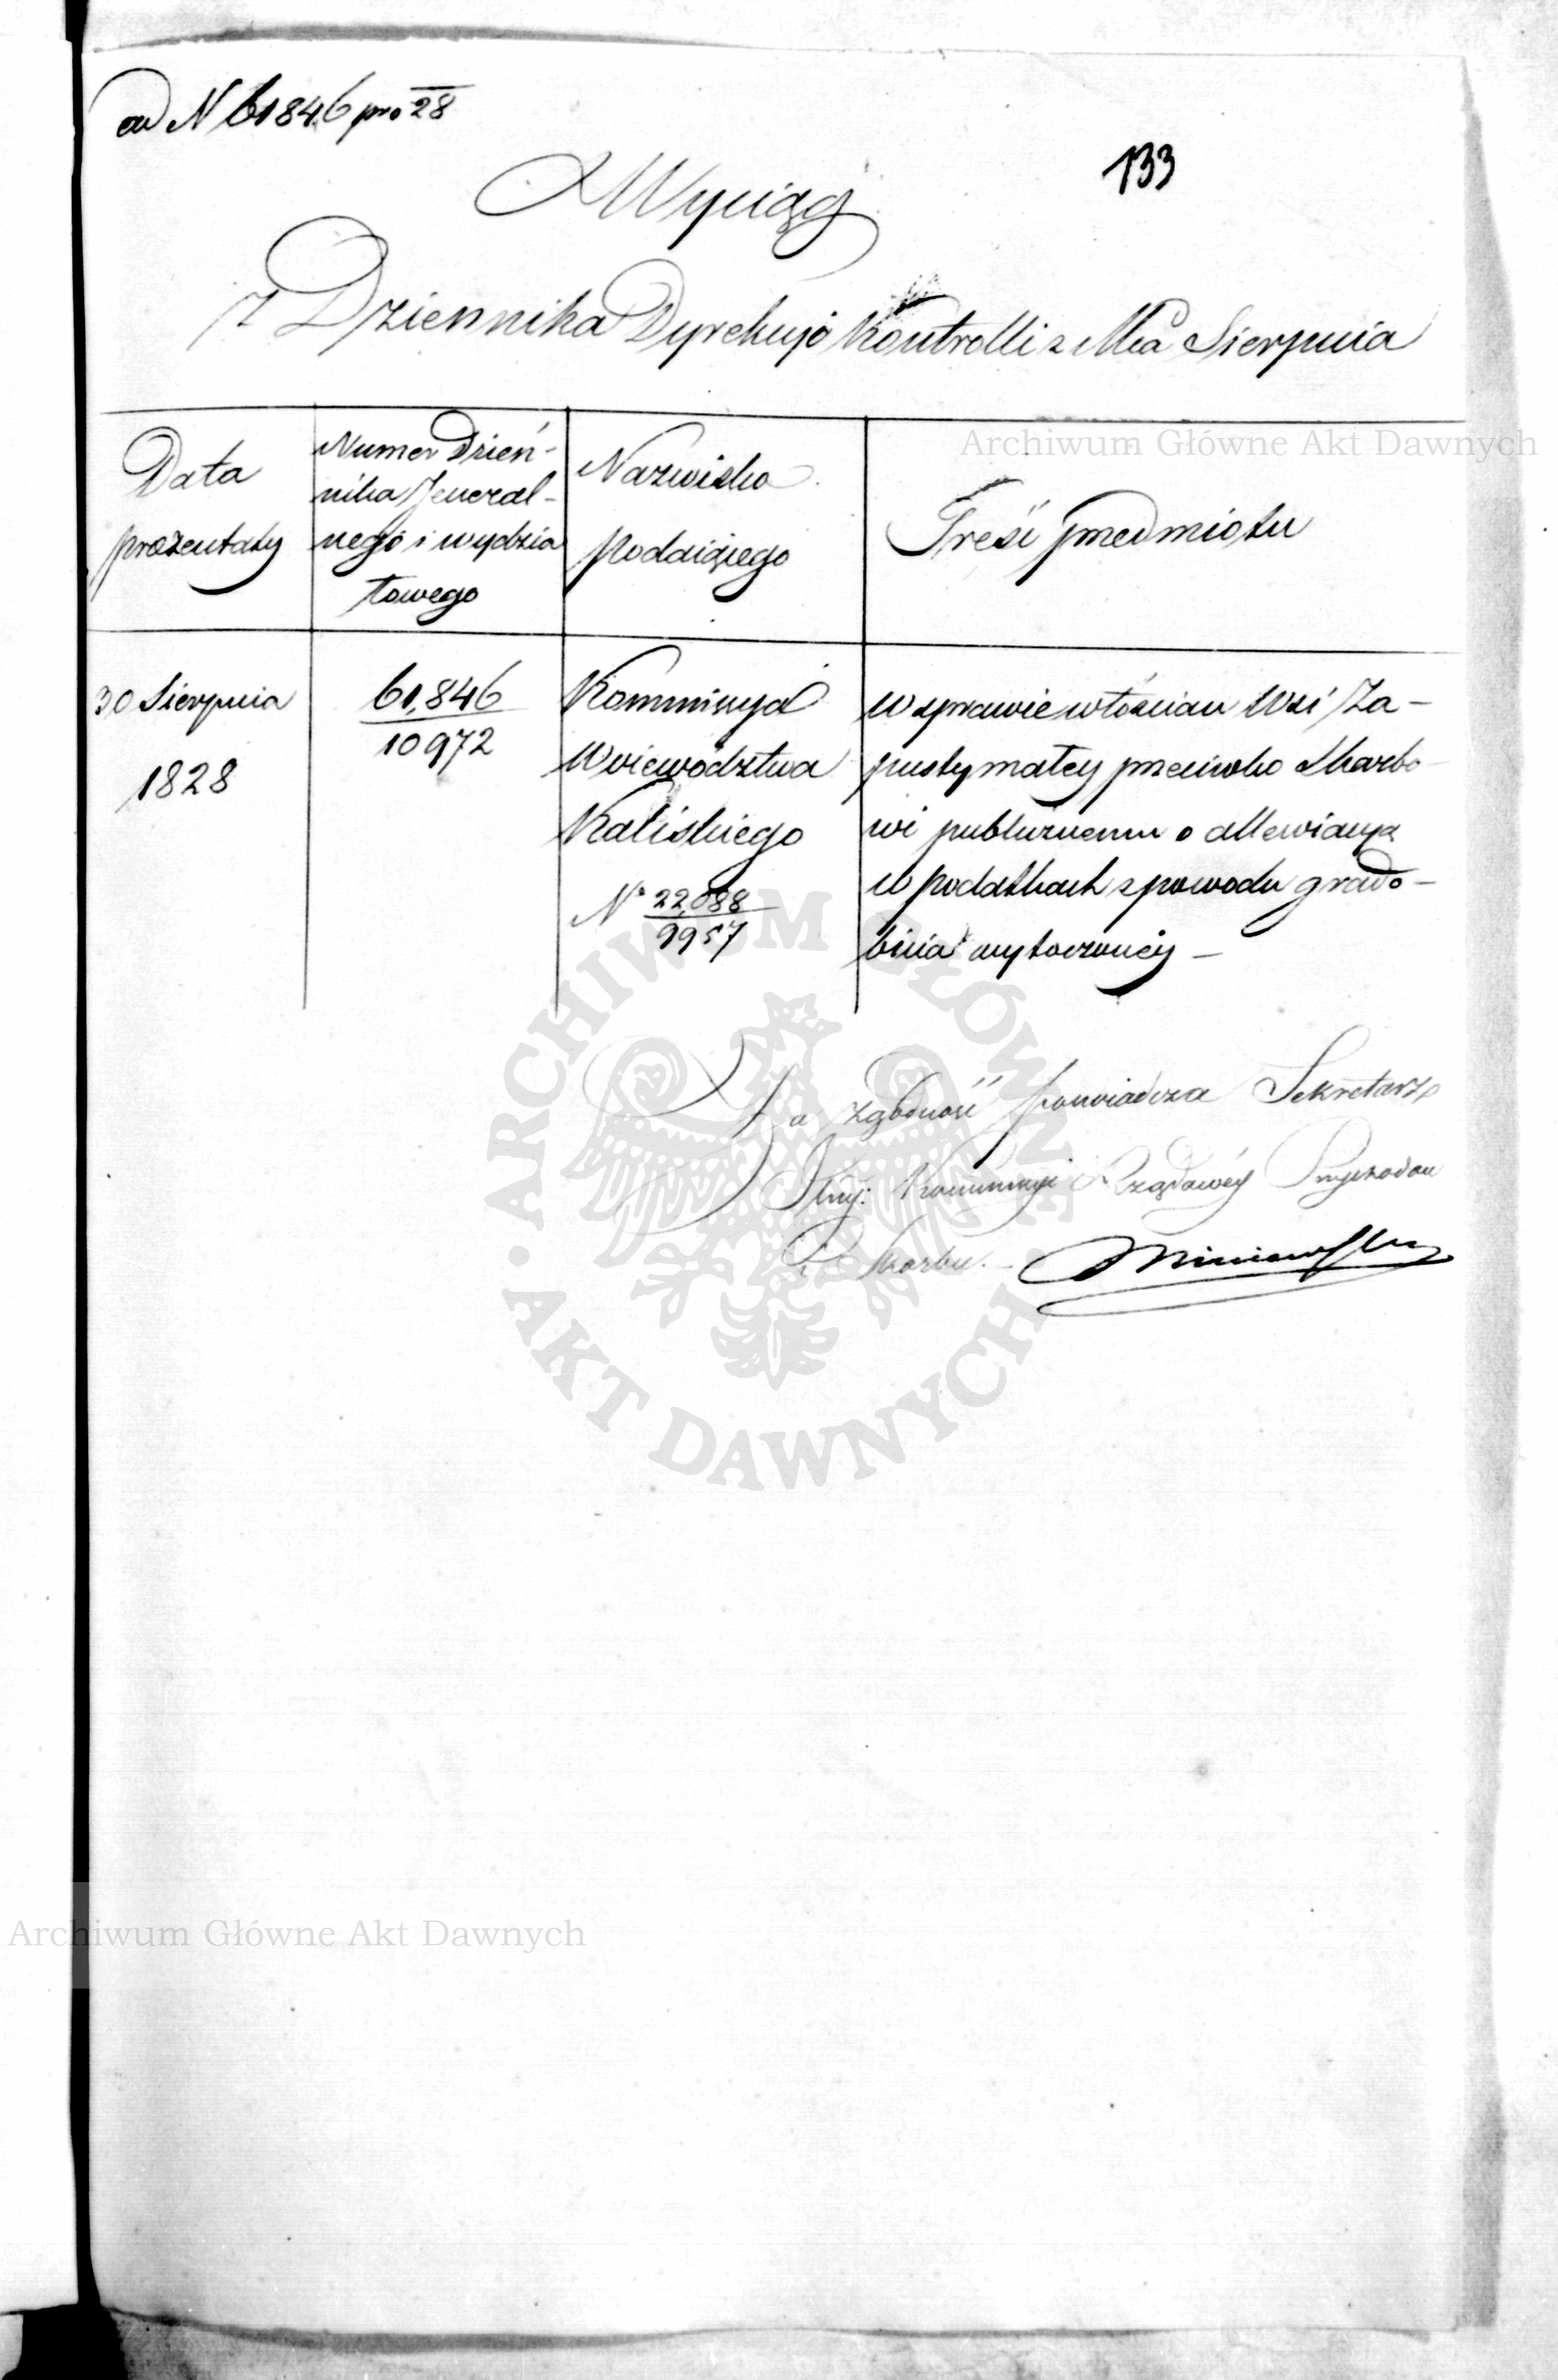 ad N 61846 pro 28
133
Wyciąg
Z Dziennika Dyrekcyi Kontrolli z Mca Sierpnia
Archiwum Główne Akt Dawnych
Data
prezentaty
Numer Dzień-
nika Jeneral-
nego i wydzia
łowego
Nazwisko
Poddaiącego
Treść przedmiotu
30 Sierpnia
1828
61,846
10972
Kommissya
Woiewództwa
Kaliskiego
No 22,088
9957
w sprawie włościan Wsi Za-
pusty małey przeciwko Skarbo-
wi publicznemu o allewiacyą
w Podatkach z powodu grado-
bicia wytoczonéy -
ARCHIWUM GŁÓWNE AKT DAWNYCH
Za zgodność poświadcza Sekretarz
Kommissyi Rządowéy Przychodow
i Skarbu. -
Archiwum Główne Akt Dawnych